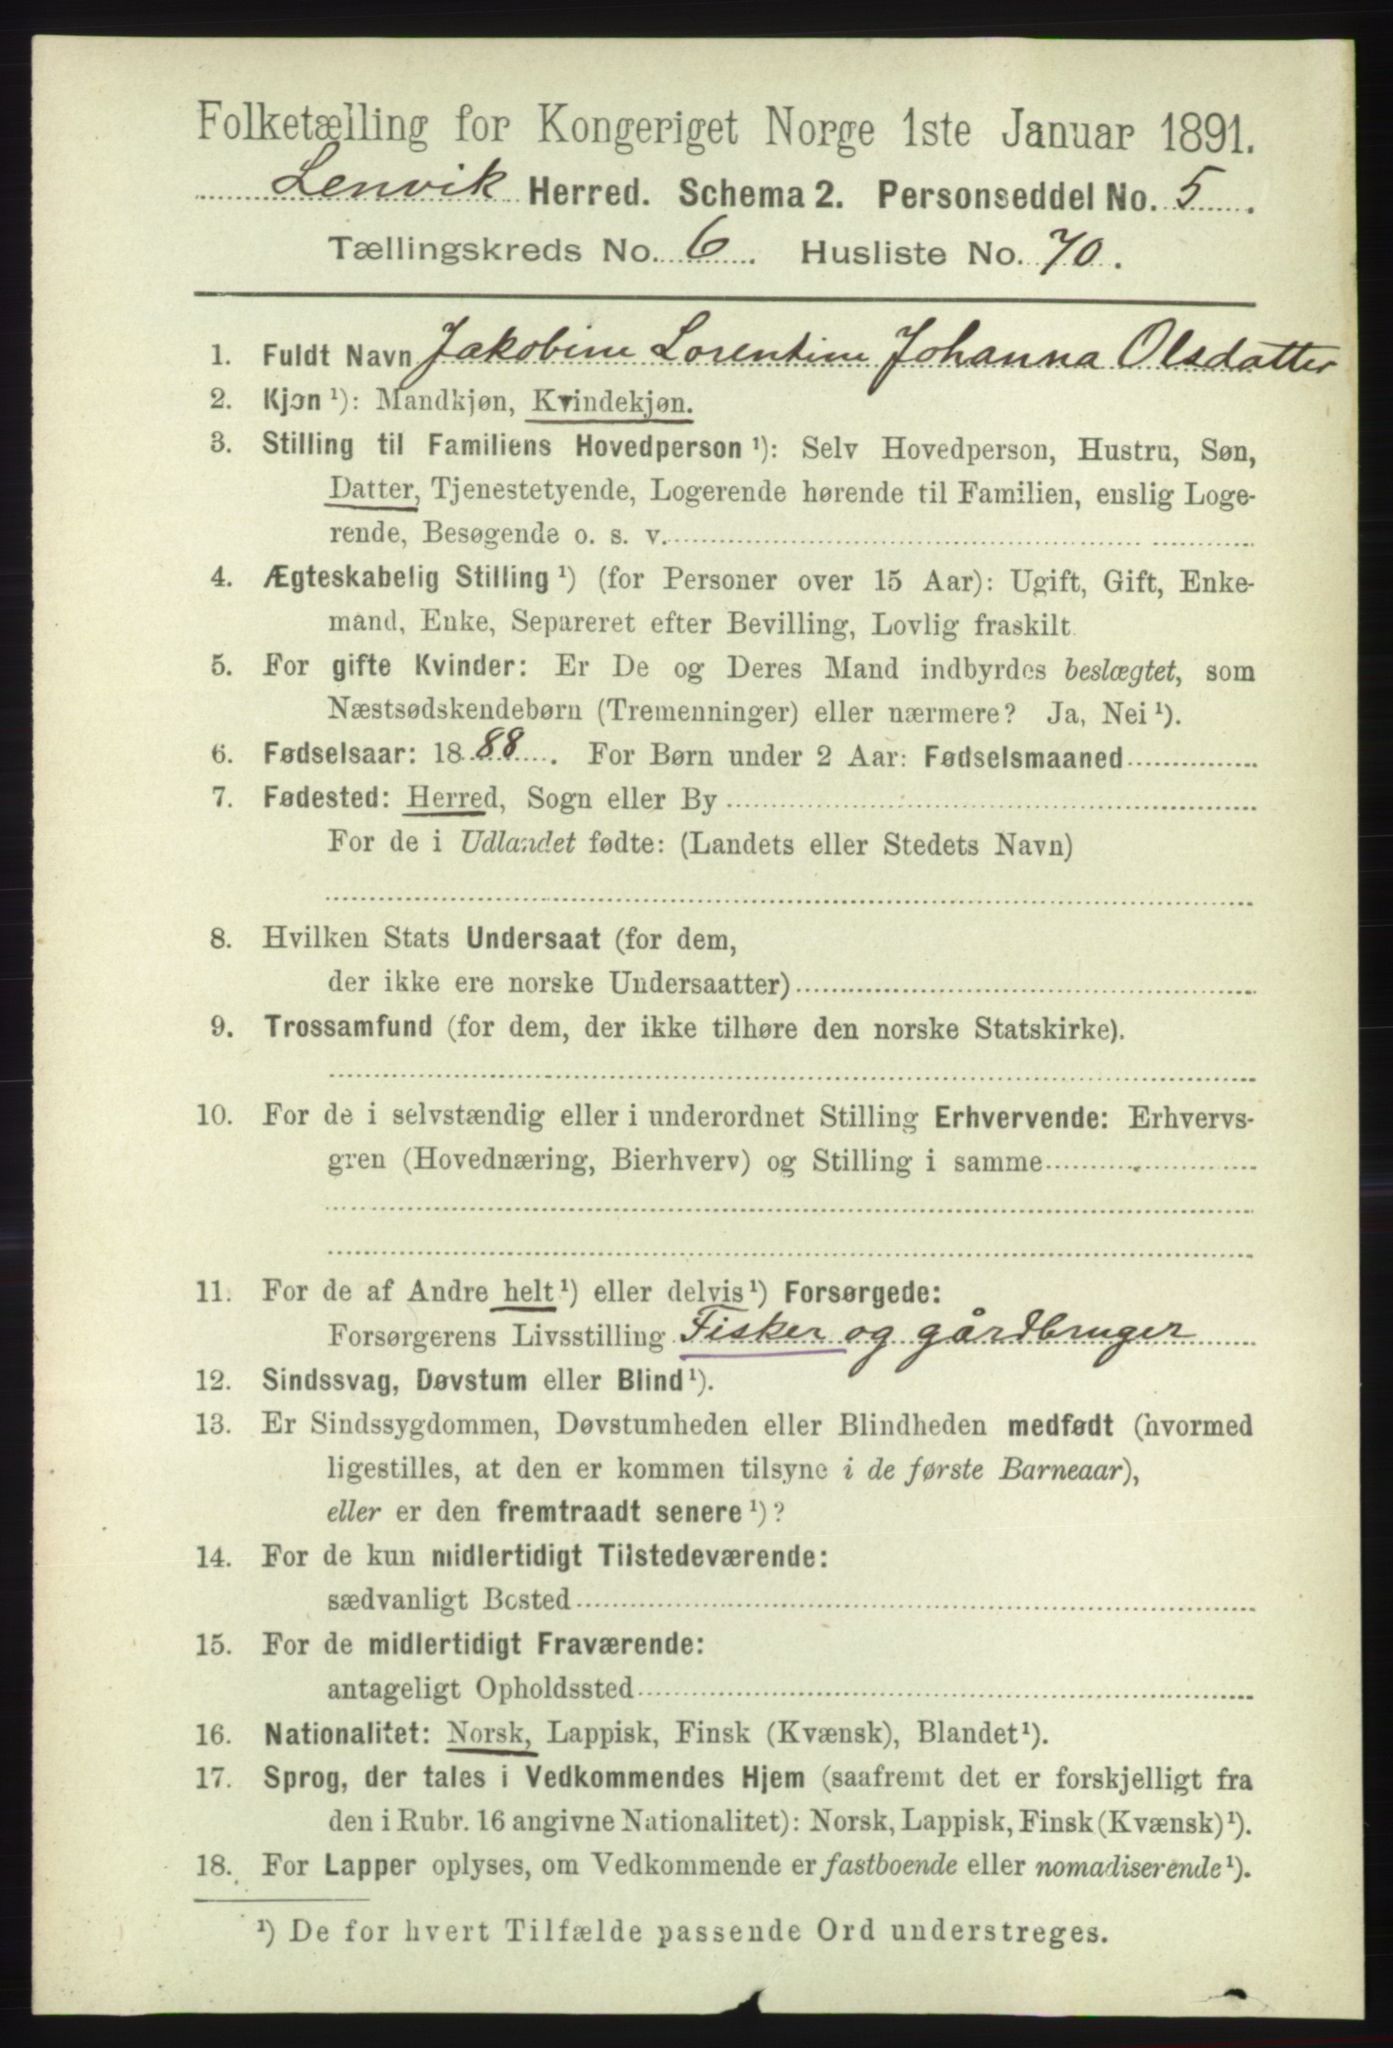 Folketælling for Kongeriget Norge 1ste Januar 1891.
Lenvik Herred. Schema 2. Personseddel No. 5.
Tællingskreds No. 6. Husliste No. 70.
1. Fuldt Navn Jakobine Lorentine Johanna Olsdatter
2. Kjøn ¹): Mandkjøn, Kvindekjøn.
3. Stilling til Familiens Hovedperson ¹): Selv Hovedperson, Hustru, Søn,
Datter, Tjenestetyende, Logerende hørende til Familien, enslig Loge-
rende, Besøgende o. s. v.
4. Ægteskabelig Stilling ¹) (for Personer over 15 Aar): Ugift, Gift, Enke-
mand, Enke, Separeret efter Bevilling, Lovlig fraskilt
5. For gifte Kvinder: Er De og Deres Mand indbyrdes beslægtet, som
Næstsødskendebørn (Tremenninger) eller nærmere? Ja, Nei ¹).
6. Fødselsaar: 1888. For Børn under 2 Aar: Fødselsmaaned
7. Fødested: Herred, Sogn eller By
For de i Udlandet fødte: (Landets eller Stedets Navn)
8. Hvilken Stats Undersaat (for dem,
der ikke ere norske Undersaatter)
9. Trossamfund (for dem, der ikke tilhøre den norske Statskirke).
10. For de i selvstændig eller i underordnet Stilling Erhvervende: Erhvervs-
gren (Hovednæring, Bierhverv) og Stilling i samme
11. For de af Andre helt ¹) eller delvis ¹) Forsørgede:
Forsørgerens Livsstilling Fisker og gårdbruger
12. Sindssvag, Døvstum eller Blind ¹).
13. Er Sindssygdommen, Døvstumheden eller Blindheden medfødt (hvormed
ligestilles, at den er kommen tilsyne i de første Barneaar),
eller er den fremtraadt senere ¹)?
14. For de kun midlertidigt Tilstedeværende:
sædvanligt Bosted
15. For de midlertidigt Fraværende:
antageligt Opholdssted
16. Nationalitet: Norsk, Lappisk, Finsk (Kvænsk), Blandet ¹).
17. Sprog, der tales i Vedkommendes Hjem (saafremt det er forskjelligt fra
den i Rubr. 16 angivne Nationalitet): Norsk, Lappisk, Finsk (Kvænsk) ¹).
18. For Lapper oplyses, om Vedkommende er fastboende eller nomadiserende ¹).
¹) De for hvert Tilfælde passende Ord understreges.